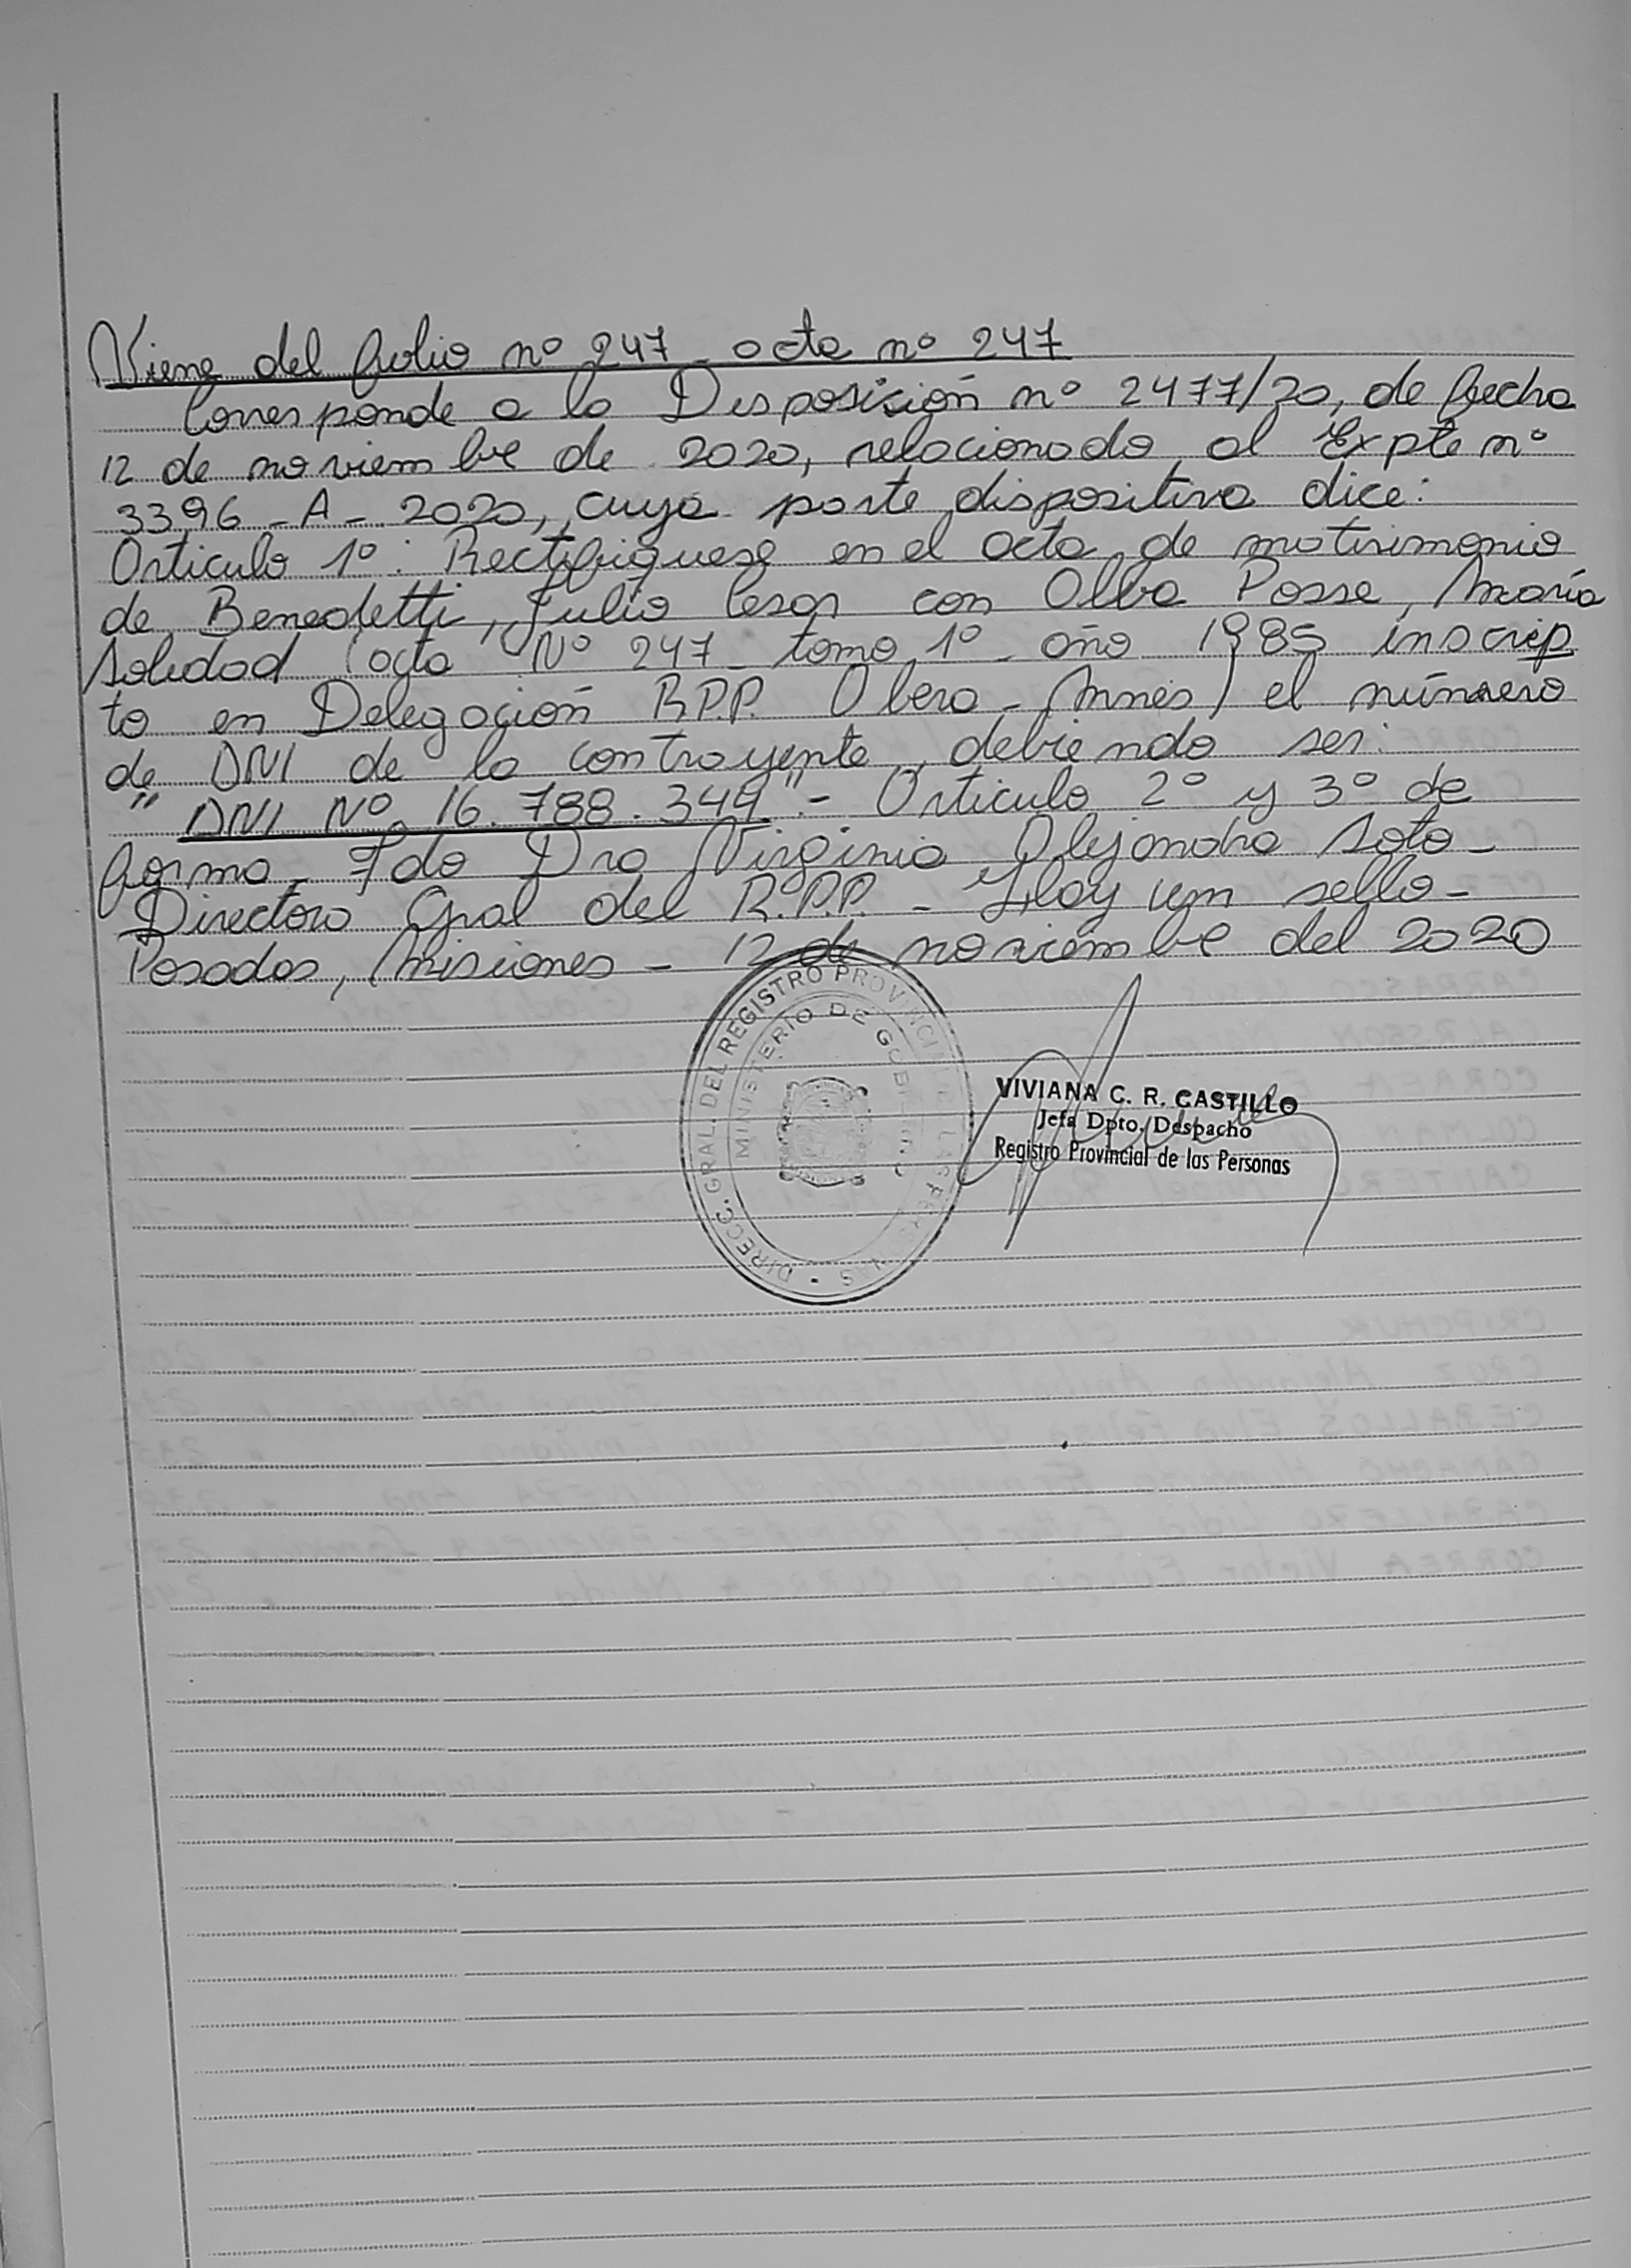 Viene del folio nº 247 - acta nº 247
Corresponde a la Disposición nº 2477/20, de fecha
12 de noviembre de 2020, relacionado al Expte nº
3396 - A - 2020, cuya parte dispositiva dice:
Articulo 1º: Rectifiquese en el acta de matirimonio
de Benedetti, Julio Cesar con Alba Posse, María
Soledad (acta Nº 247 - tomo 1º - año 1985 inscrip
to en Delegación R.P.P. Obera - Mnes) el número
de DNI de la contrayente, debiendo ser:
" DNI Nº 16.788.349." - Articulo 2º y 3º de
forma - Fdo Dra Virginia Alejandra Soto -
Directora Gral del R.P.P. - Hay un sello -
Posadas, Misiones - 12 de noviembre del 2020
DIRECC. GRAL. DEL REGISTRO PROVINCIAL DE LAS PERSONAS
MINISTERIO DE GOBIERNO
VIVIANA C. R. CASTILLO
Jefa Dpto. Despacho
Registro Provincial de las Personas